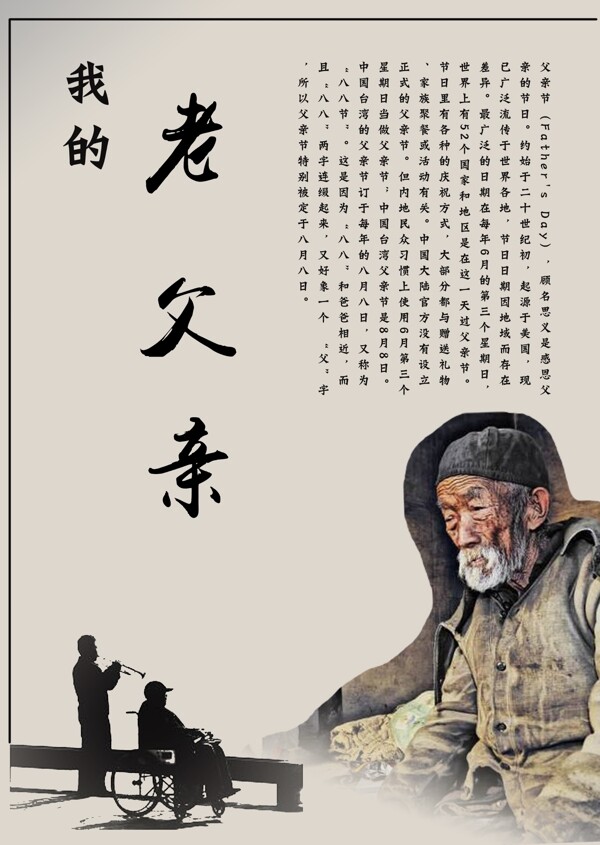 我的
老父亲
父亲节（Father's Day），顾名思义是感恩父
亲的节日。约始于二十世纪初，起源于美国，现
已广泛流传于世界各地，节日日期因地域而存在
差异。最广泛的日期在每年6月的第三个星期日，
世界上有52个国家和地区是在这一天过父亲节。
节日里有各种的庆祝方式，大部分都与赠送礼物
、家族聚餐或活动有关。中国大陆官方没有设立
正式的父亲节。但内地民众习惯上使用6月第三个
星期日当做父亲节；中国台湾父亲节是8月8日。
中国台湾的父亲节订于每年的八月八日，又称为
“八八节”。这是因为“八八”和爸爸相近，而
且“八八”两字连缀起来，又好象一个 “父”字
，所以父亲节特别被定于八月八日。